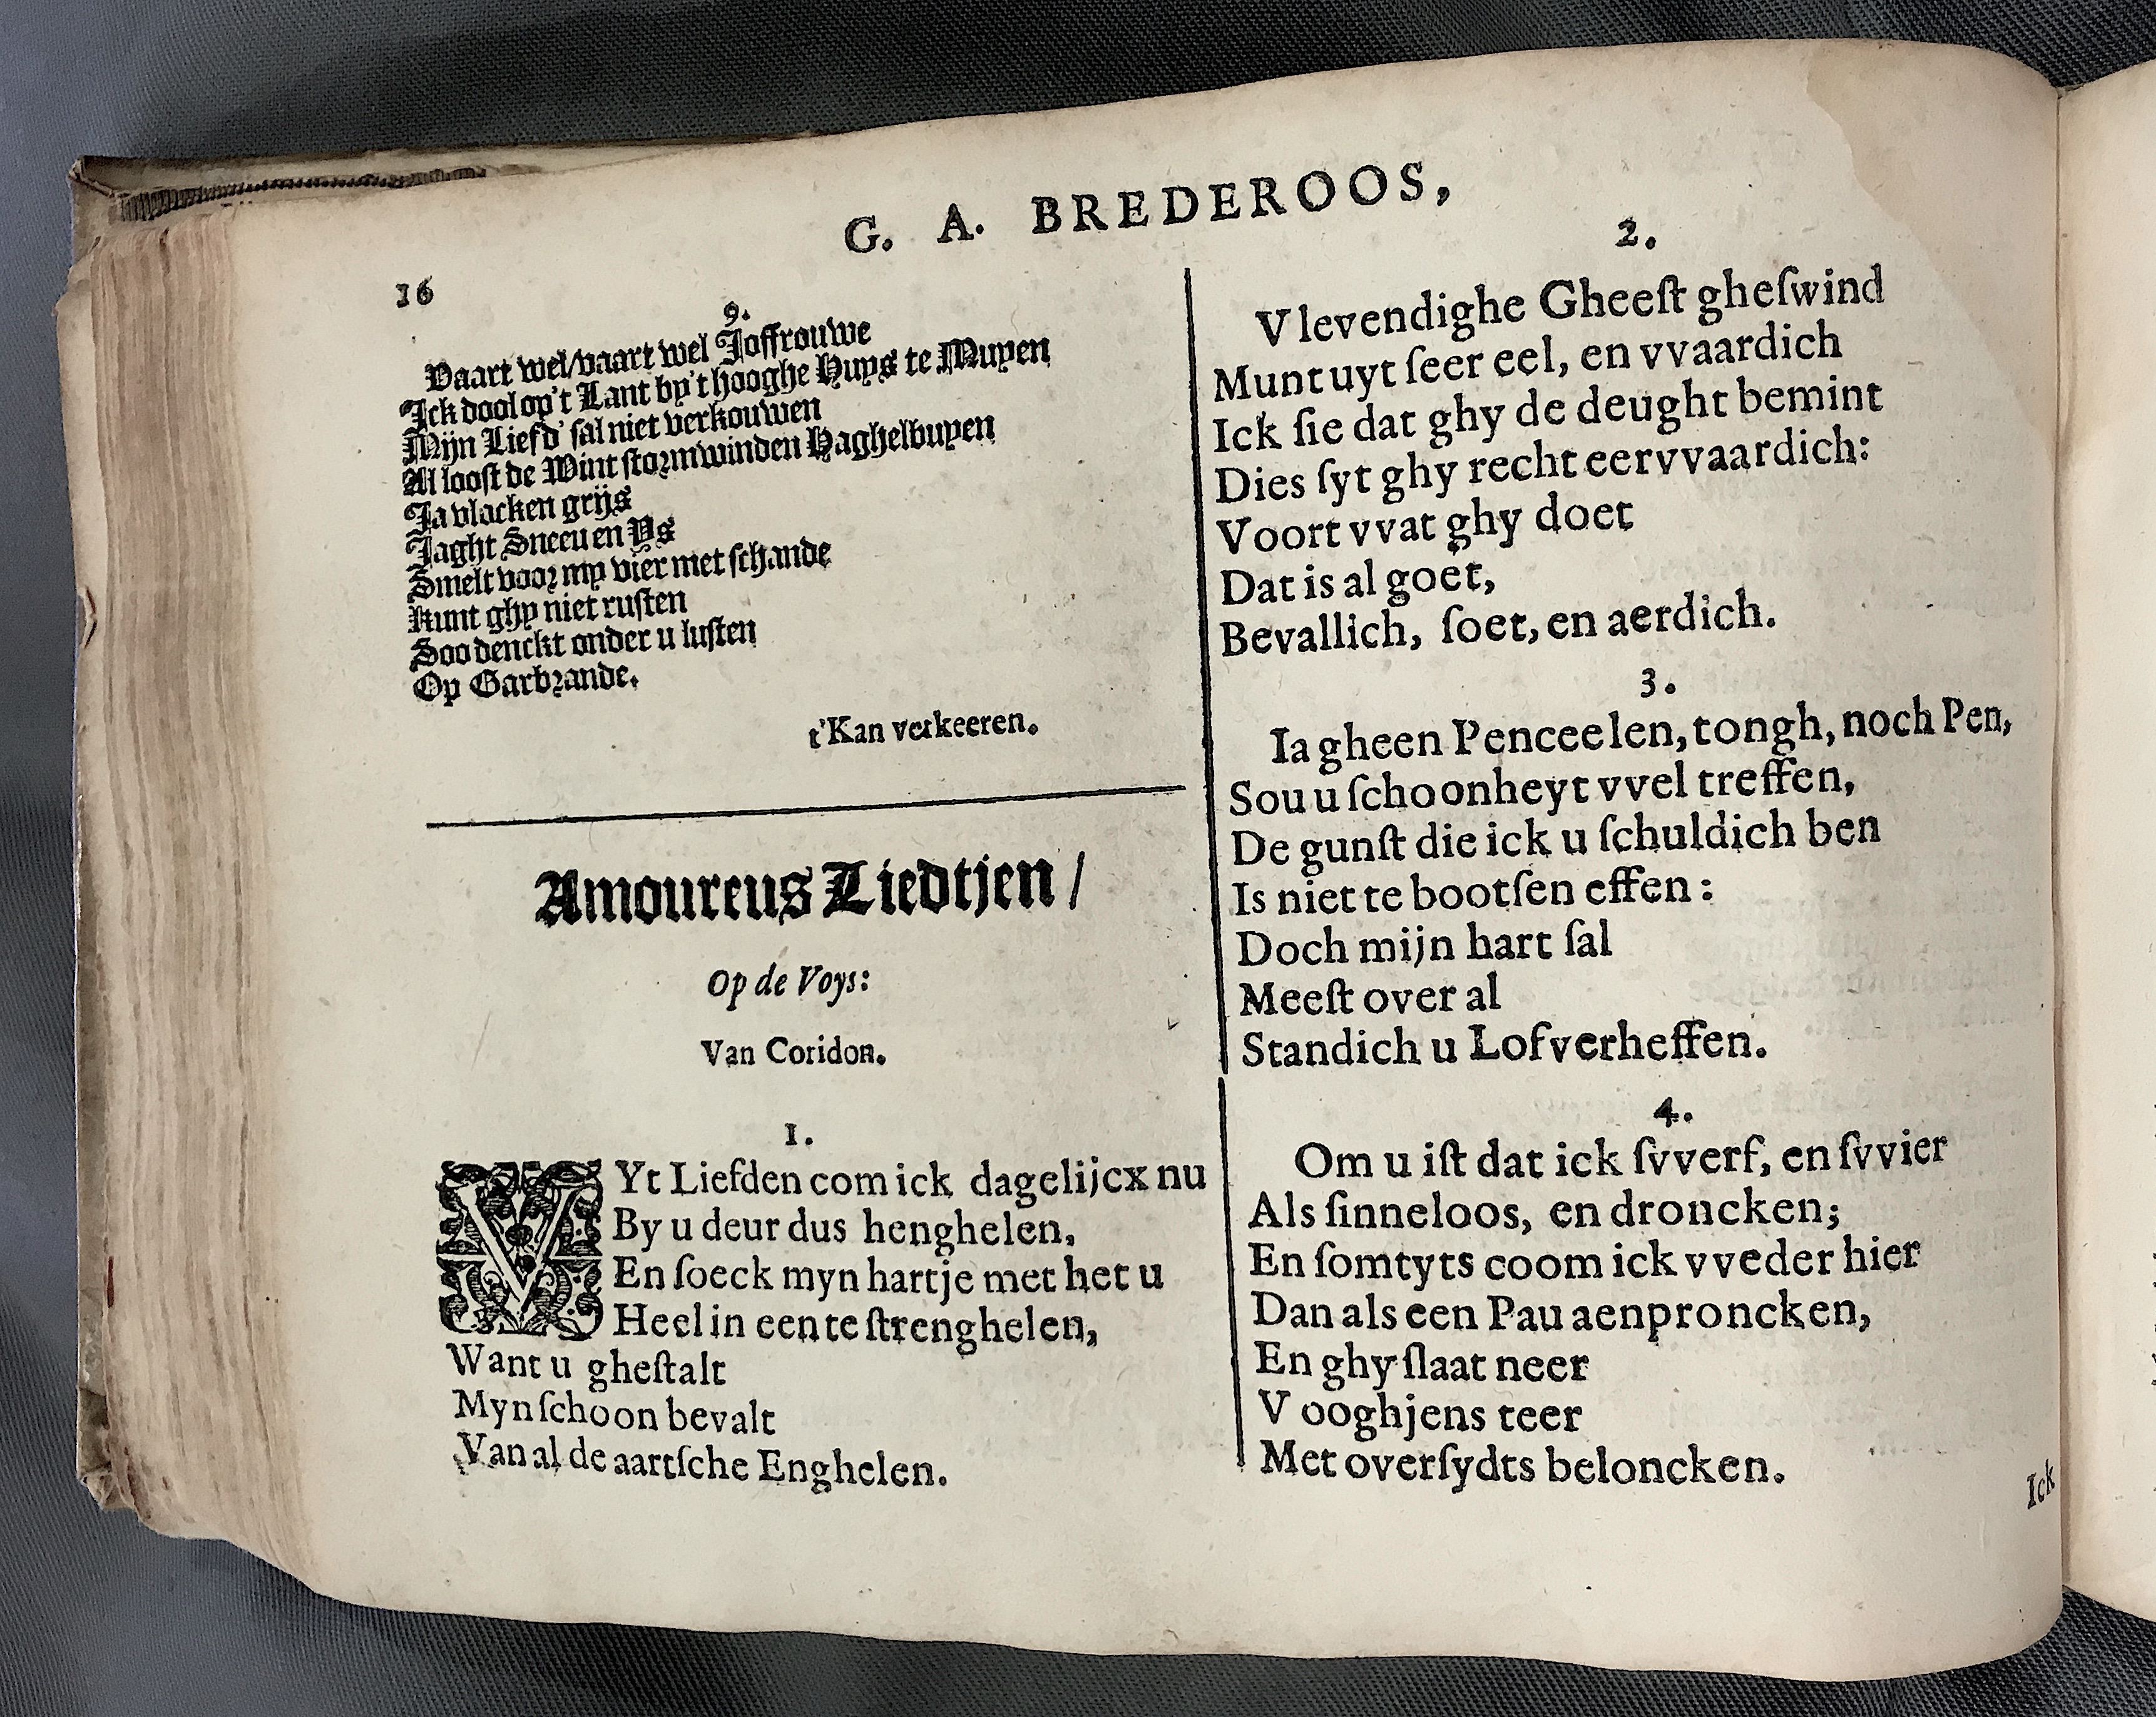 G. A. BREDEROOS,
16
9.
Vaart wel/vaart wel Joffrouwe
Ick dool op't Lant by't hooghe Huys te Muyen
Mijn Liefd' sal niet verkouwen
Al loost de Wint stormwinden Haghelbuyen
Ja vlacken grijs
Jaght Sneeu en Ys
Smelt voor my vier met schande
Kunt ghy niet rusten
Soo denckt onder u lusten
Op Garbrande.
t'Kan verkeeren.
Amoureus Liedtjen /
Op de Voys:
Van Coridon.
1.
VYt Liefden com ick dagelijcx nu
By u deur dus henghelen,
En ſoeck myn hartje met het u
Heel in een te ſtrenghelen,
Want u gheſtalt
Myn ſchoon bevalt
Van al de aartſche Enghelen.
2.
V levendighe Gheeſt gheſwind
Munt uyt ſeer eel, en vvaardich
Ick ſie dat ghy de deught bemint
Dies ſyt ghy recht eervvaardich:
Voort vvat ghy doet
Dat is al goet,
Bevallich, ſoet, en aerdich.
3.
Ia gheen Penceelen, tongh, noch Pen,
Sou u ſchoonheyt vvel treffen,
De gunſt die ick u ſchuldich ben
Is niet te bootſen effen:
Doch mijn hart ſal
Meeſt over al
Standich u Lof verheffen.
4.
Om u iſt dat ick ſvverf, en ſvvier
Als ſinneloos, en droncken;
En ſomtyts coom ick vveder hier
Dan als een Pau aenproncken,
En ghy ſlaat neer
V ooghjens teer
Met overſydts beloncken.
Ick